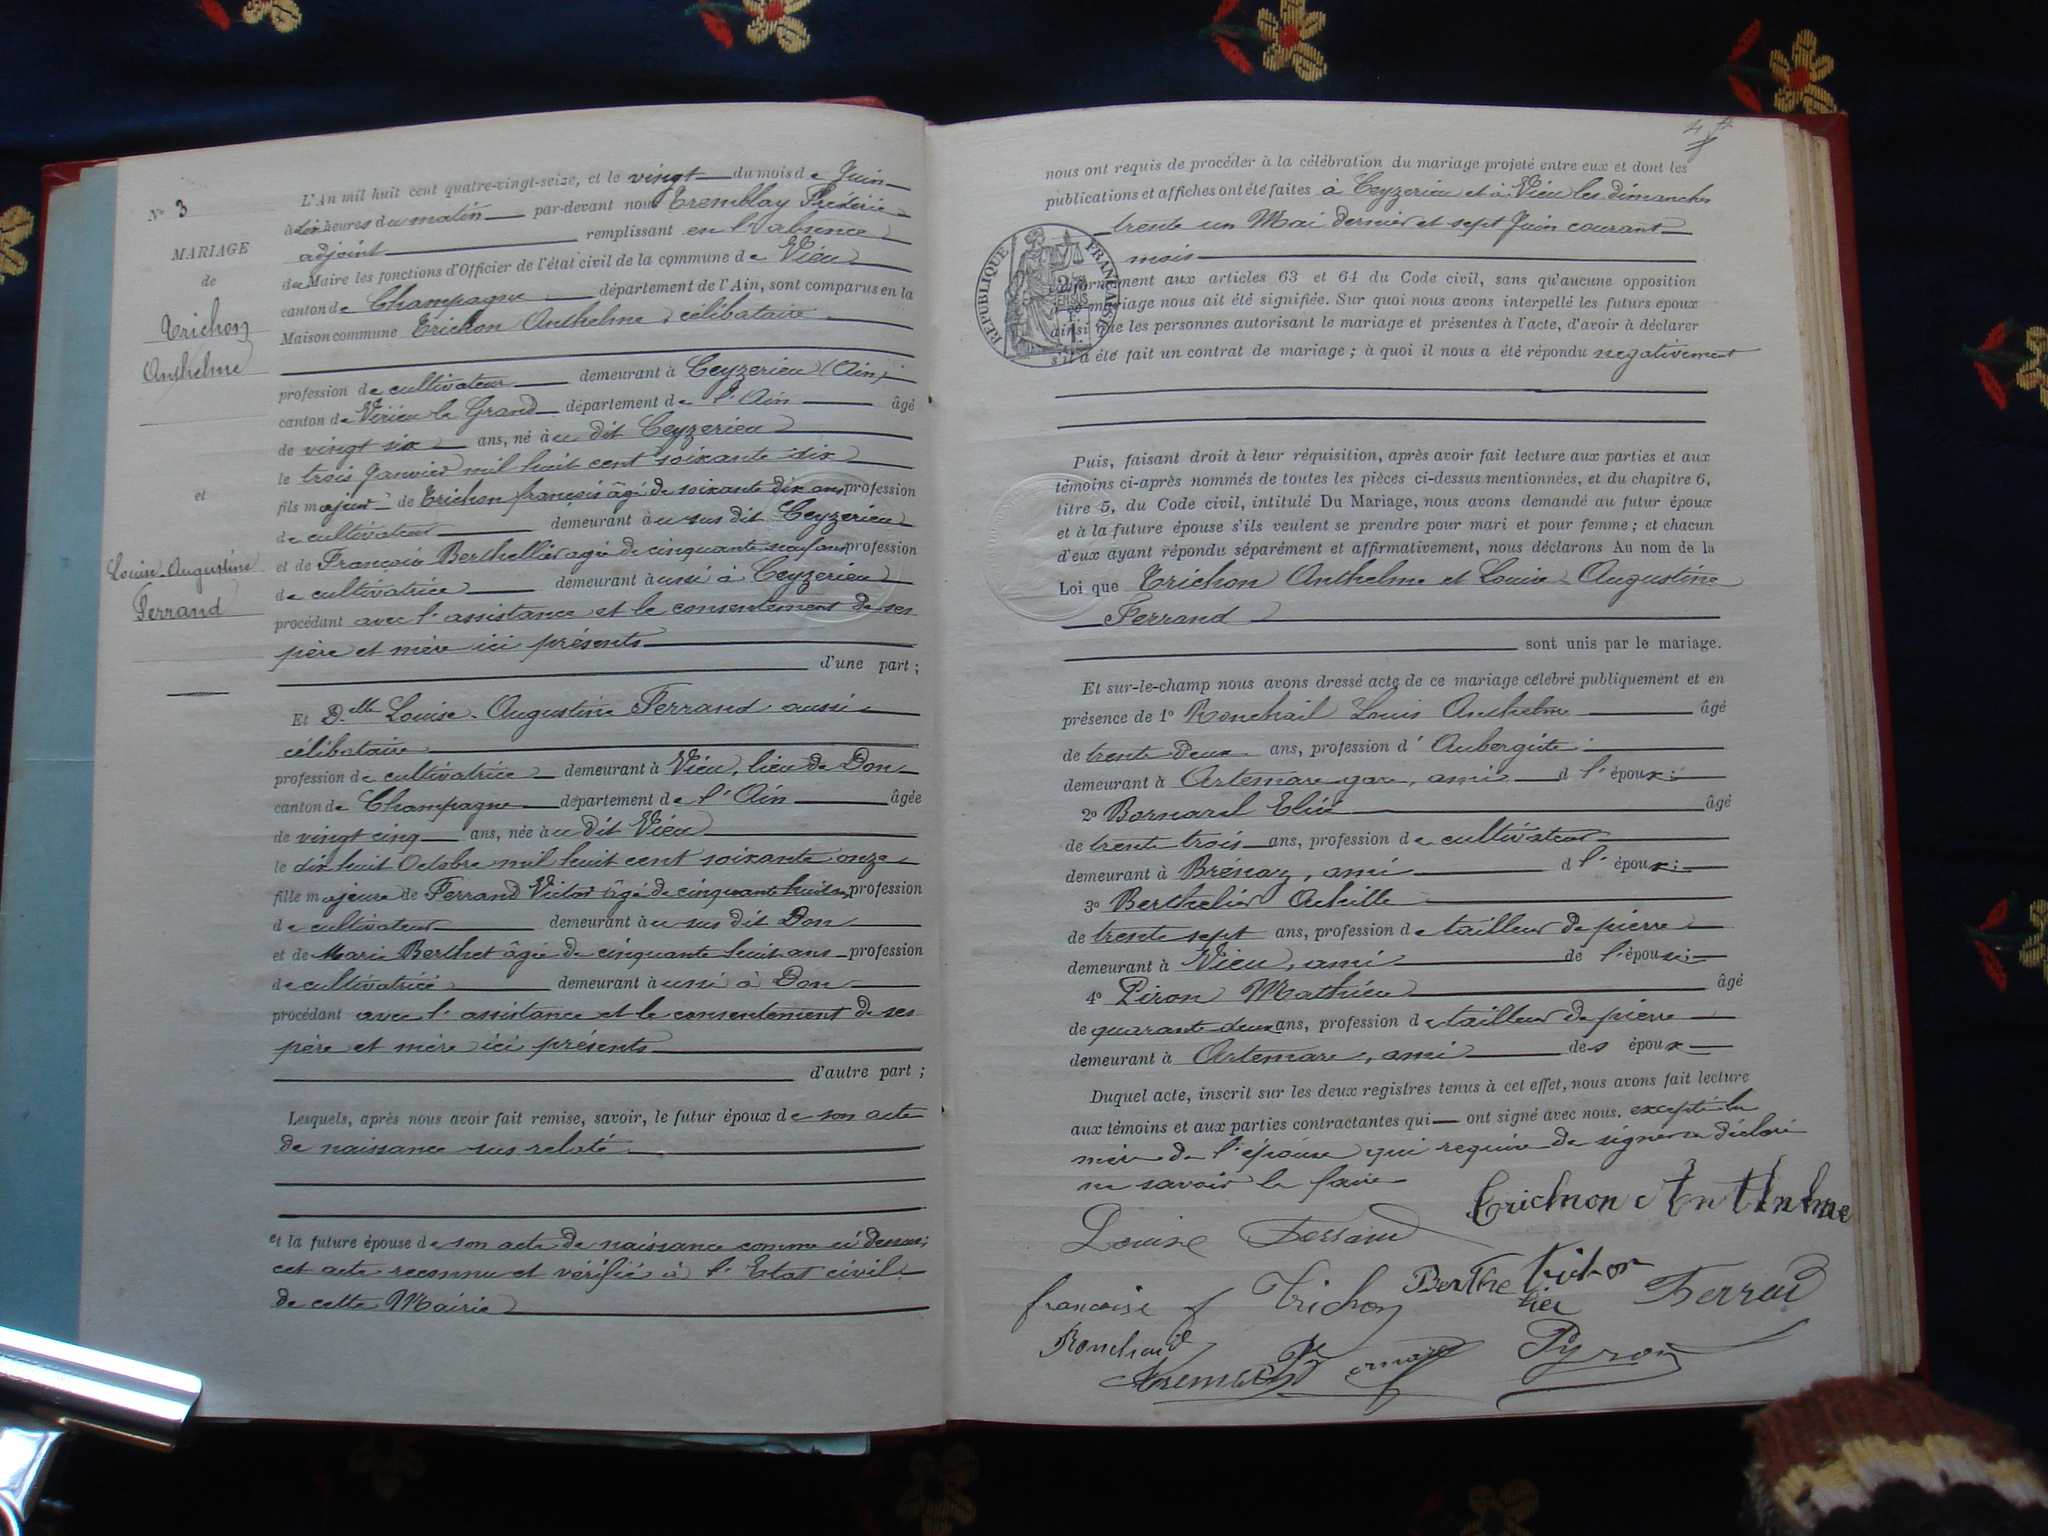 N° 3
MARIAGE
de
Trichon
Anthelme
et
Louise-Augustine
Ferrand
L'An mil huit cent quatre-vingt-seize, et le vingt du mois de Juin
à dix heures du matin par-devant nous Tremblay Fréderic
adjoint remplissant en l'absence
du Maire les fonctions d'Officier de l'état civil de la commune de Vieu
canton de Champagne département de l'Ain, sont comparus en la
Maison commune Trichon Anthelme, célibataire
profession de cultivateur demeurant à Ceyzerieu (Ain)
canton de Virieu le Grand département de l'Ain âgé
de vingt six ans, né au dit Ceyzerieu
le trois Janvier mil huit cent soixante dix
fils majeur de Trichon françois âgé de soixante dix ans profession
de cultivateur demeurant au sus dit Ceyzerieu
et de Françoise Berthellier agée de cinquante neuf ans profession
de cultivatrice demeurant aussi à Ceyzerieu
procédant avec l'assistance et le consentement de ses
père et mère ici présents
d'une part ;
Et D.lle Louise-Augustine Ferrand aussi
célibataire
profession de cultivatrice demeurant à Vieu, lieu de Don
canton de Champagne département de l'Ain âgée
de vingt cinq ans, née au dit Vieu
le dix huit Octobre mil huit cent soixante onze
fille majeure de Ferrand Victor âgé de cinquante huit ans profession
de cultivateur demeurant au sus dit Don
et de Marie Berthet âgée de cinquante huit ans profession
de cultivatrice demeurant aussi à Don
procédant avec l'assistance et le consentement de ses
père et mère ici présents
d'autre part ;
Lesquels, après nous avoir fait remise, savoir, le futur époux de son acte
de naissance sus relaté
et la future épouse de son acte de naissance comme ci dessus;
cet acte reconnu et vérifié à l'Etat civil
de cette Mairie
4
nous ont requis de procéder à la célébration du mariage projeté entre eux et dont les
publications et affiches ont été faites à Ceyzerieu et à Vieu les dimanches
trente un Mai dernier et sept Juin courant
mois
RÉPUBLIQUE FRANÇAISE
conformément aux articles 63 et 64 du Code civil, sans qu'aucune opposition
à ce mariage nous ait été signifiée. Sur quoi nous avons interpellé les futurs epoux
ainsi que les personnes autorisant le mariage et présentes à l'acte, d'avoir à déclarer
s'il a été fait un contrat de mariage ; à quoi il nous a été répondu negativement
Puis, faisant droit à leur réquisition, après avoir fait lecture aux parties et aux
témoins ci-après nommés de toutes les pièces ci-dessus mentionnées, et du chapitre 6,
titre 5, du Code civil, intitulé Du Mariage, nous avons demandé au futur époux
et à la future épouse s'ils veulent se prendre pour mari et pour femme ; et chacun
d'eux ayant répondu séparément et affirmativement, nous déclarons Au nom de la
Loi que Trichon Anthelme et Louise-Augustine
Ferrand
sont unis par le mariage.
Et sur-le-champ nous avons dressé acte de ce mariage célébré publiquement et en
présence de 1° Ronchail Louis Anthelme âgé
de trente deux ans, profession d'Aubergiste
demeurant à Artemare gare, ami d l'époux;
2° Bornarel Elie âgé
de trente trois ans, profession de cultivateur
demeurant à Brénaz, ami d l'époux;
3° Berthelier Achille
de trente sept ans, profession de tailleur de pierre
demeurant à Vieu, ami de l'épouse;
4° Piron Mathieu âgé
de quarante deux ans, profession de tailleur de pierre
demeurant à Artemare, ami des époux
Duquel acte, inscrit sur les deux registres tenus à cet effet, nous avons fait lecture
aux témoins et aux parties contractantes qui ont signé avec nous. excepté la
mère de l'épouse qui requise de signer a déclaré
ne savoir le faire
Trichnon Anthlnhme
Louise Ferrand
francoise f Trichon Berthe lier trichon Ferrand
Ronchail Bornarel Pyron